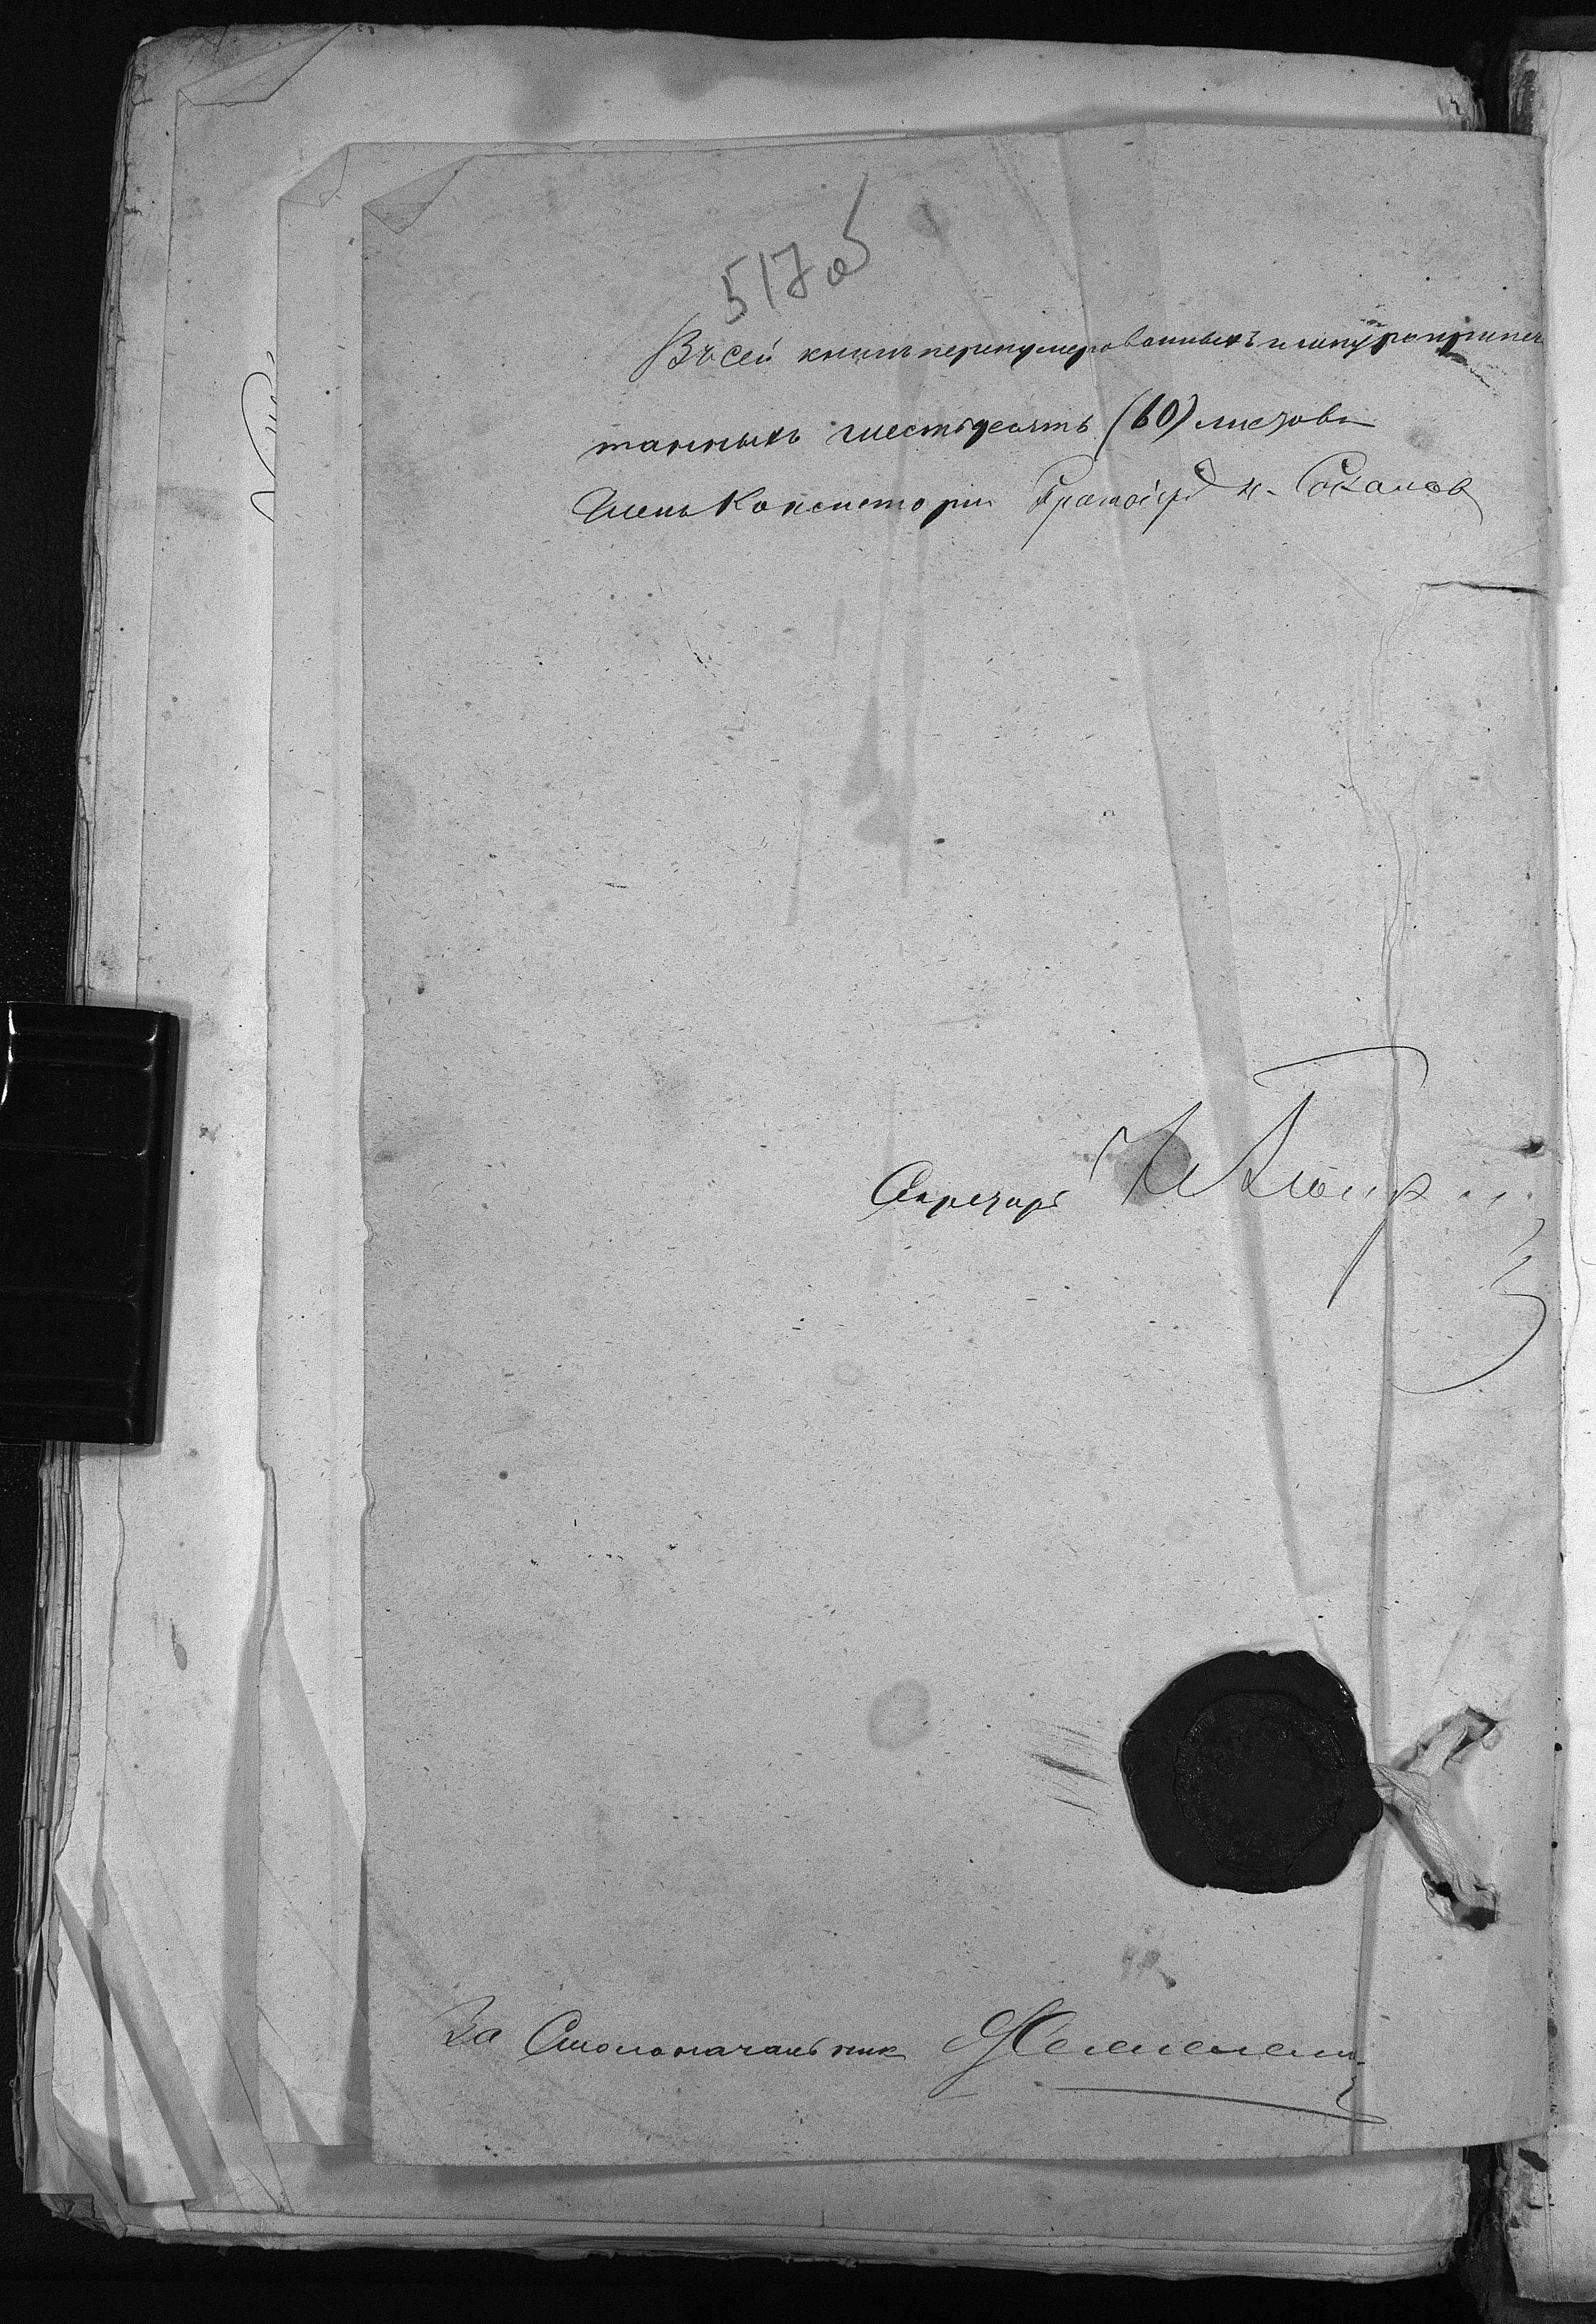 517 об
Въ сей книге перенумерованныхъ и шнуроприпеча
танныхъ шестьдесятъ (60) листовъ
Членъ Консисторіи Протоіерей Н. Соколов
Секретарь
За Столоначальника